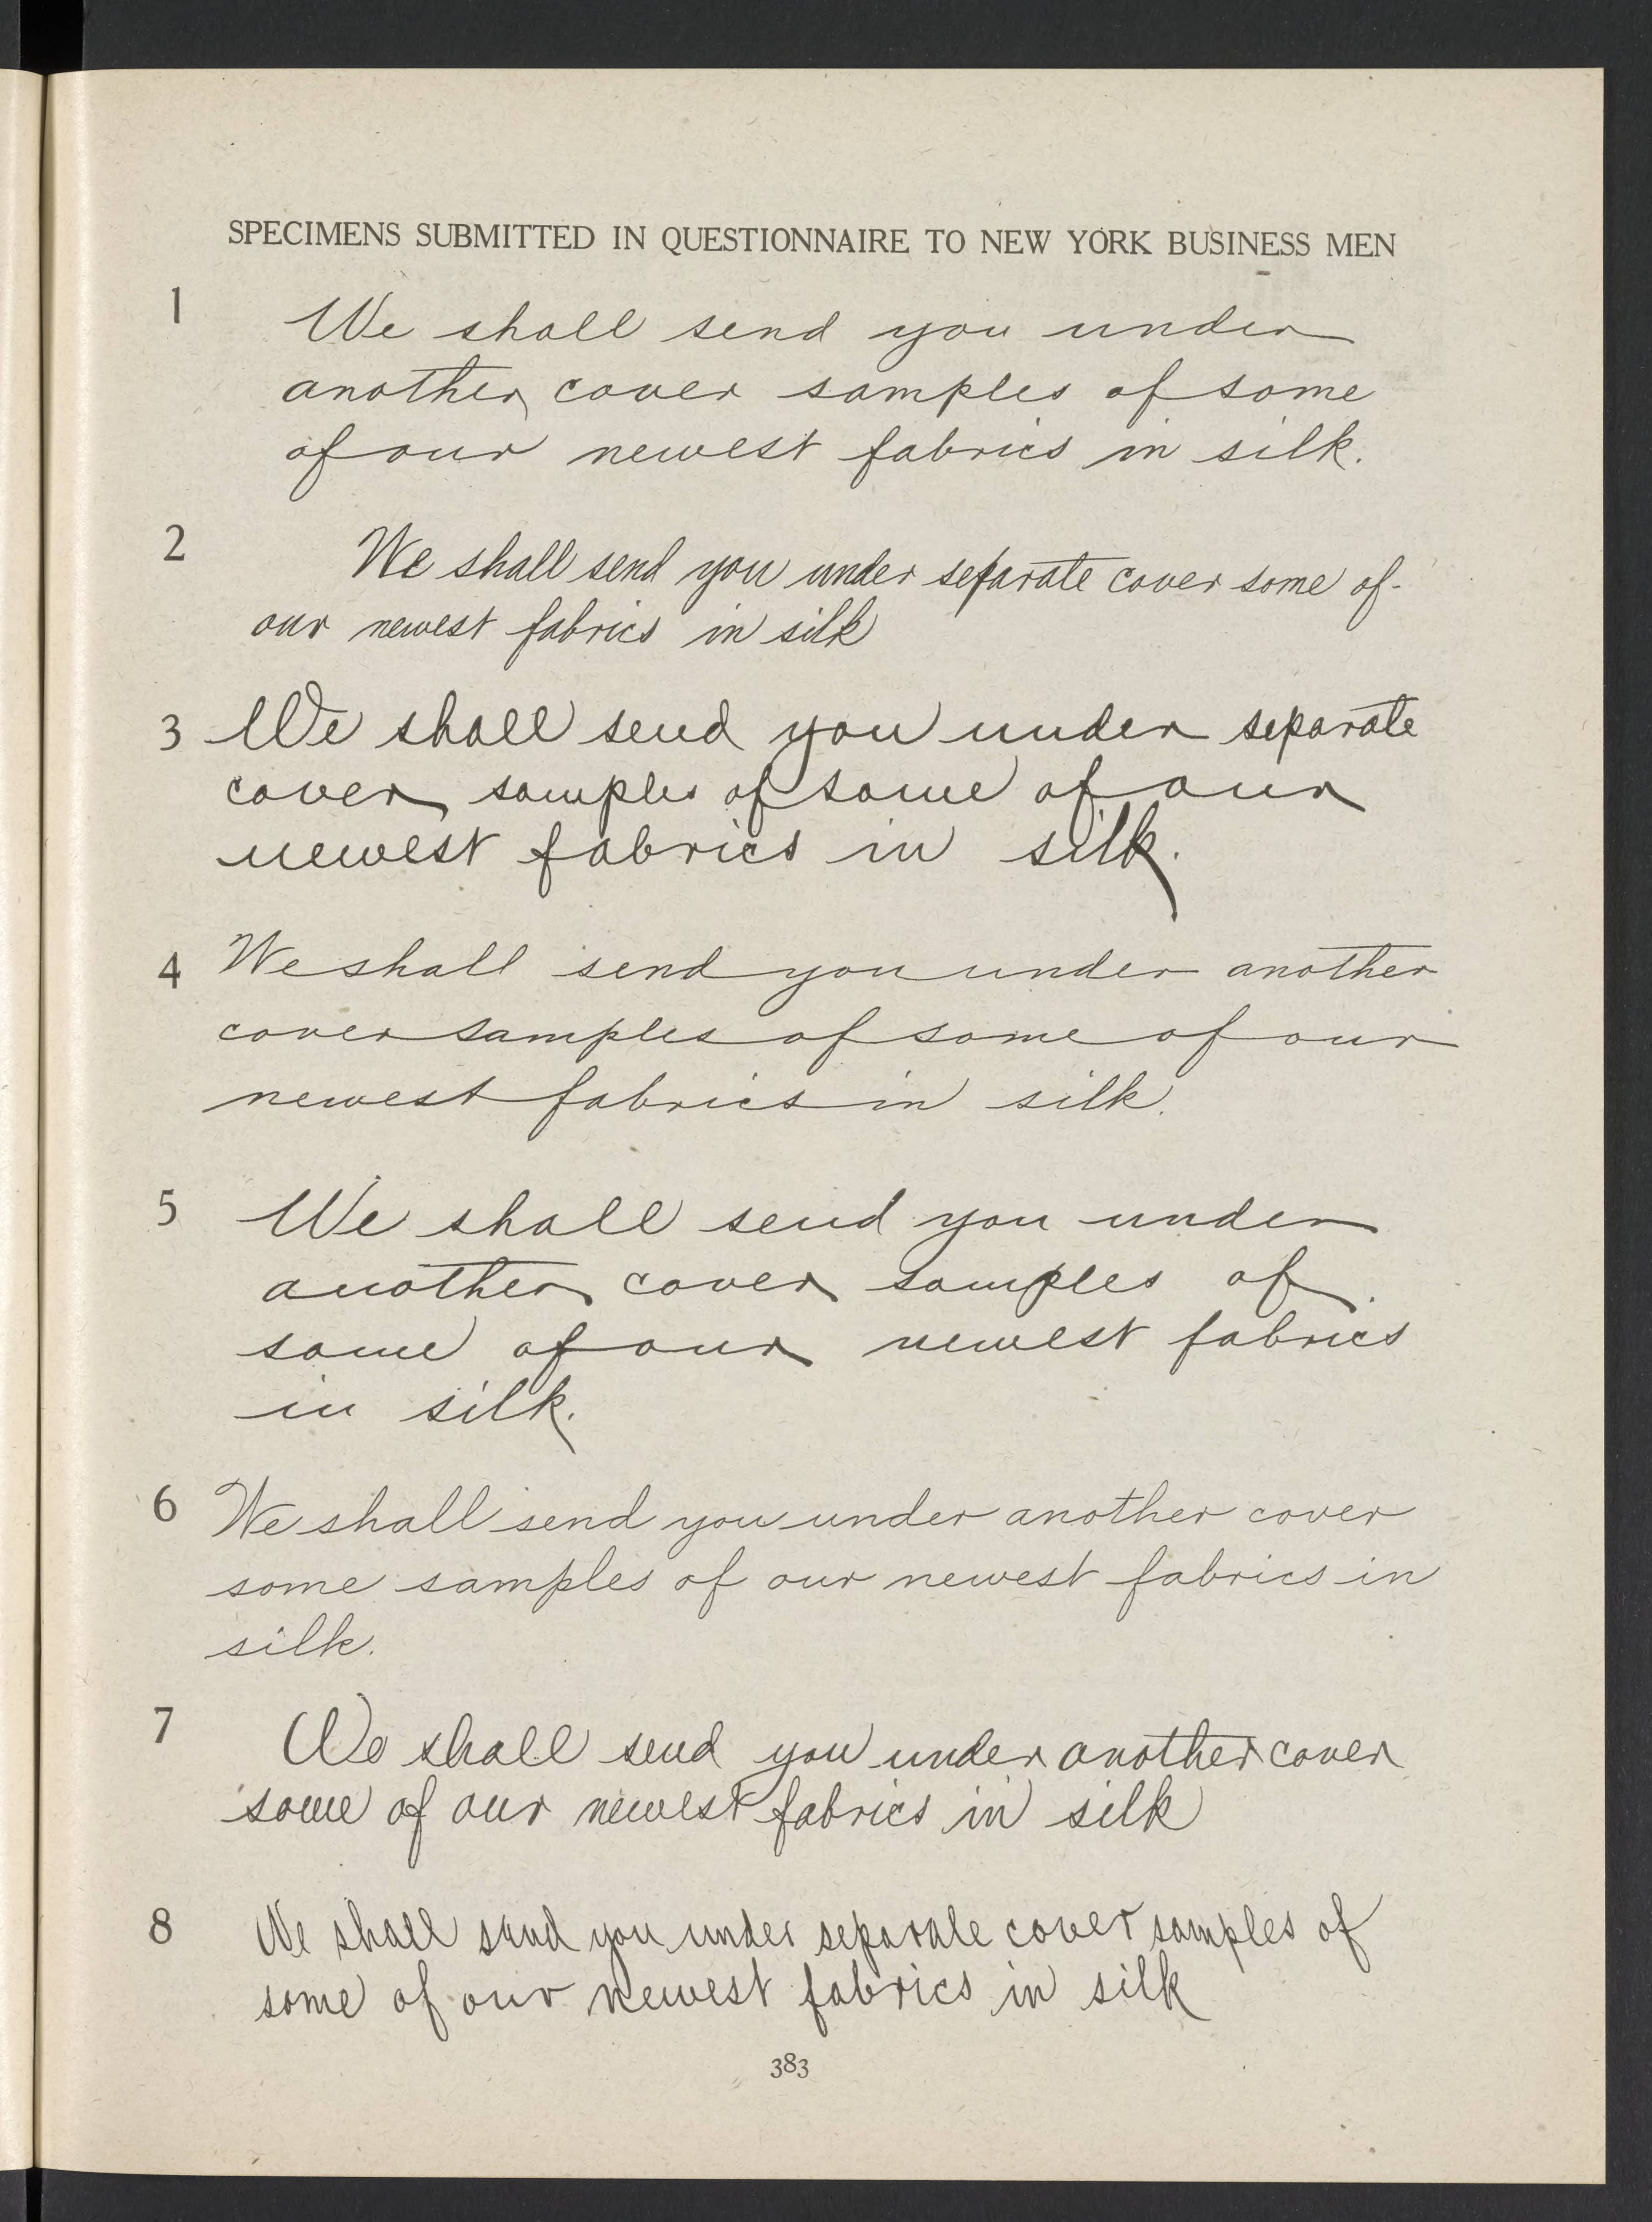 SPECIMENS SUBMITTED IN QUESTIONNAIRE TO NEW YORK BUSINESS MEN
1 We shall send you under
another cover samples of some
of our newest fabrics in silk.
2 We shall send you under separate cover some of
our newest fabrics in silk
3 We shall send you under separate
cover samples of some of our
newest fabrics in silk.
4 We shall send you under another
cover samples of some of our
newest fabrics in silk.
5 We shall send you under
another cover samples of
some of our newest fabrics
in silk.
6 We shall send you under another cover
some samples of our newest fabrics in
silk.
7 We shall send you under another cover
some of our newest fabrics in silk
8 We shall send you under separate cover samples of
some of our newest fabrics in silk
383